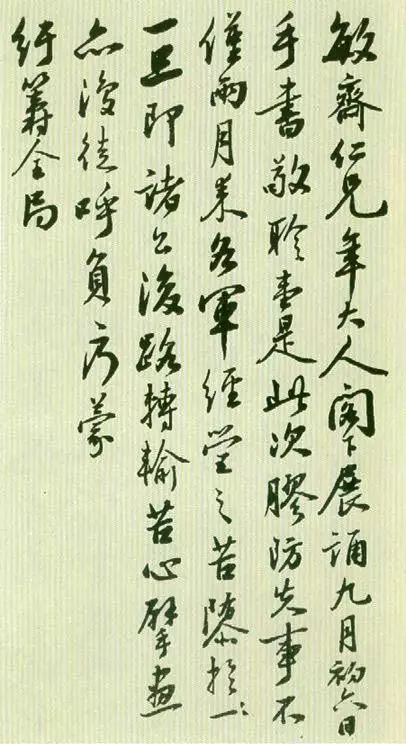 敏齋仁兄年大人閣下展誦九月初六日
手書敬聆壹是此次膠防失事不
僅兩月來各軍經營之苦隳於一
一旦即諸公後路轉輸苦心擘畫
亦復徒呼負蒙
紆籌全局